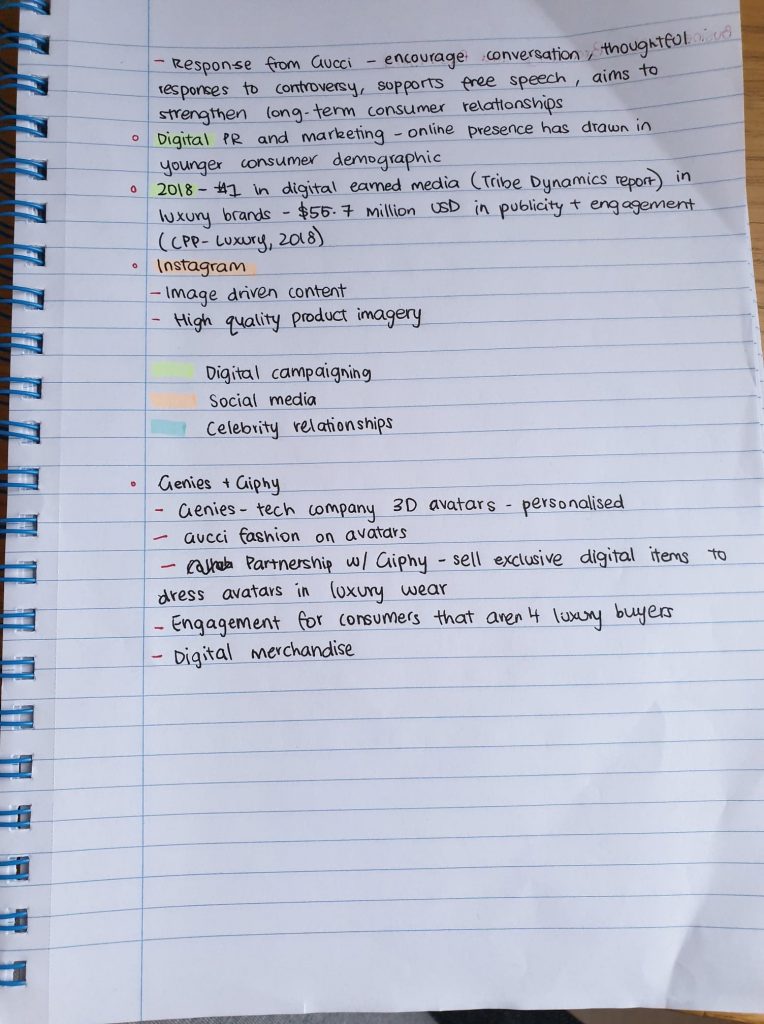 - Response from Gucci - encourage conversation, thoughtful
responses to controversy, supports free speech, aims to
strengthen long-term consumer relationships
Digital PR and marketing - online presence has drawn in
younger consumer demographic
2018 - #1 in digital earned media (Tribe Dynamics report) in
luxury brands - $55.7 million USD in publicity + engagement
(CPP-Luxury, 2018)
Instagram
- Image driven content
- High quality product imagery
Digital campaigning
Social media
Celebrity relationships
Genies + Giphy
- Genies - tech company 3D avatars - personalised
- Gucci fashion on avatars
- Partnership w/ Giphy - sell exclusive digital items to
dress avatars in luxury wear
- Engagement for consumers that aren't luxury buyers
- Digital merchandise